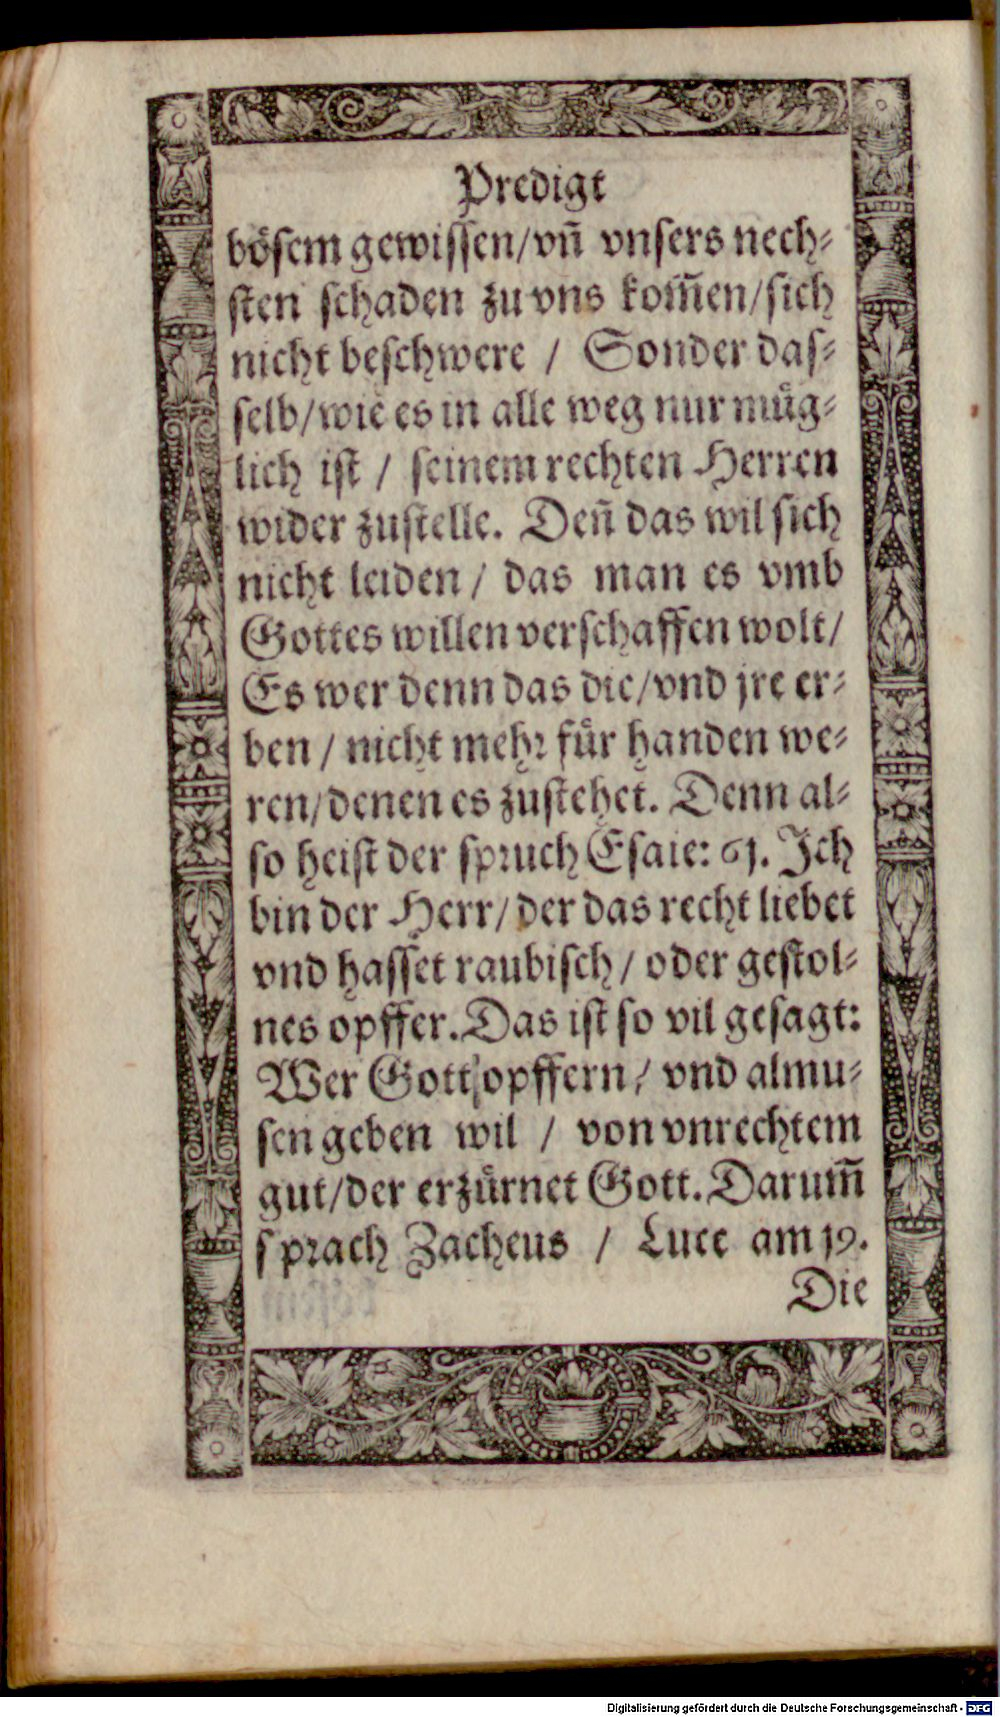 Predigt
bösem gewissen/vn̄ vnsers nech⸗
sten schaden zu vns kom̄en/sich
nicht beschwere / Sonder das⸗
selb/wie es in alle weg nur müg⸗
lich ist / seinem rechten Herren
wider zustelle. Den̄ das wil sich
nicht leiden/ das man es vmb
Gottes willen verschaffen wolt/
Es wer denn das die/vnd jre er⸗
ben / nicht mehr für handen we⸗
ren/denen es zustehet. Denn al⸗
so heist der spruch Esaie: 61. Ich
bin der Herr/der das recht liebet
vnd hasset raubisch/oder gestol⸗
nes opffer. Das ist so vil gesagt:
Wer Gott opffern/ vnd almu⸗
sen geben wil / von vnrechtem
gut/der erzürnet Gott. Darum̄
sprach Zacheus / Luce am 19.
Die
Digitalisierung gefördert durch die Deutsche Forschungsgemeinschaft - DFG